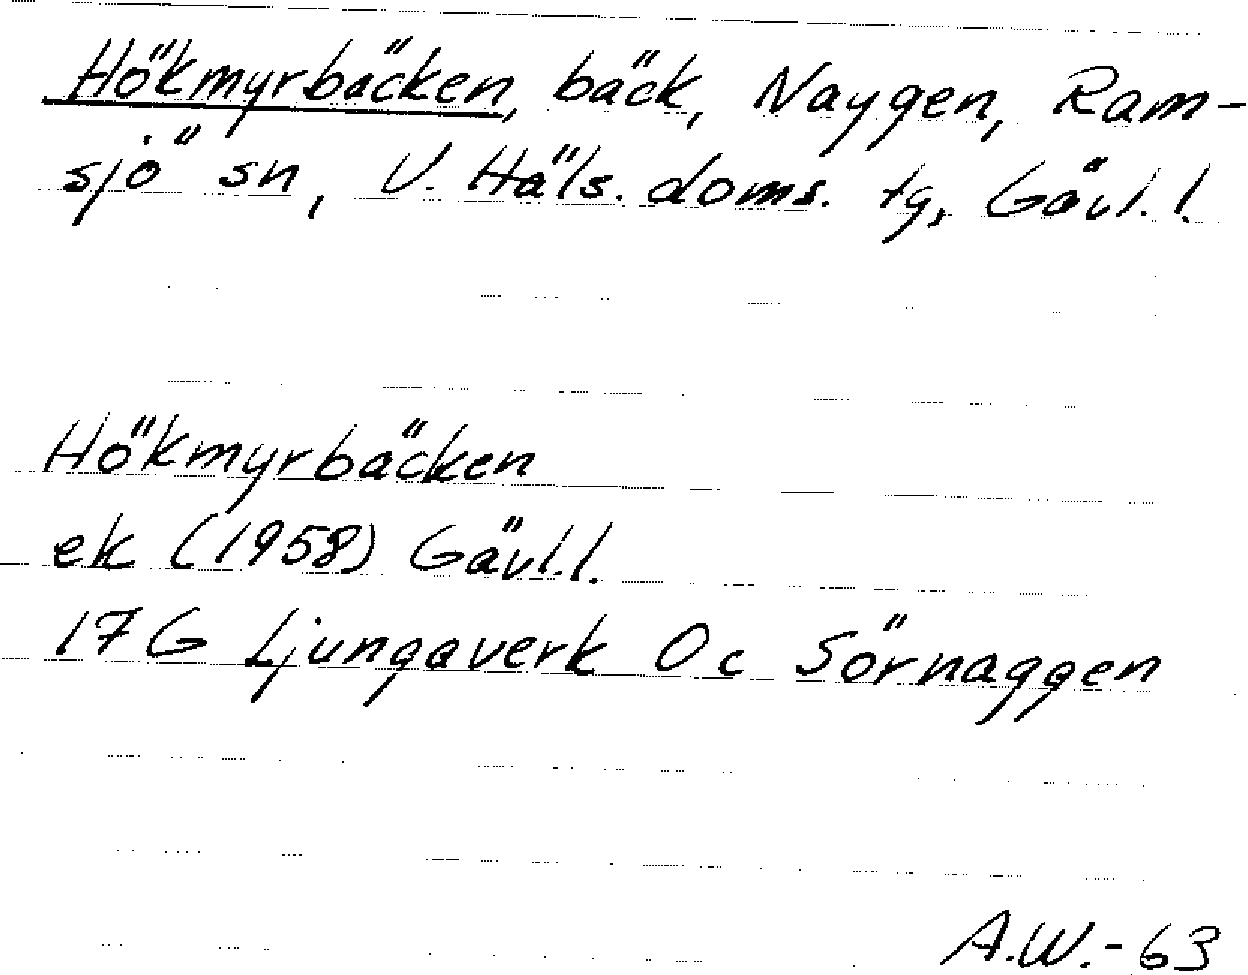 Hökmyrbäcken, bäck, Naygen, Ram-
sjö sn, V. Häls. doms. tg, Gävl. l.
Hökmyrbäcken
ek (1958) Gävl. l.
17G Ljungaverk Oc Sörnaggen
A.W.-63